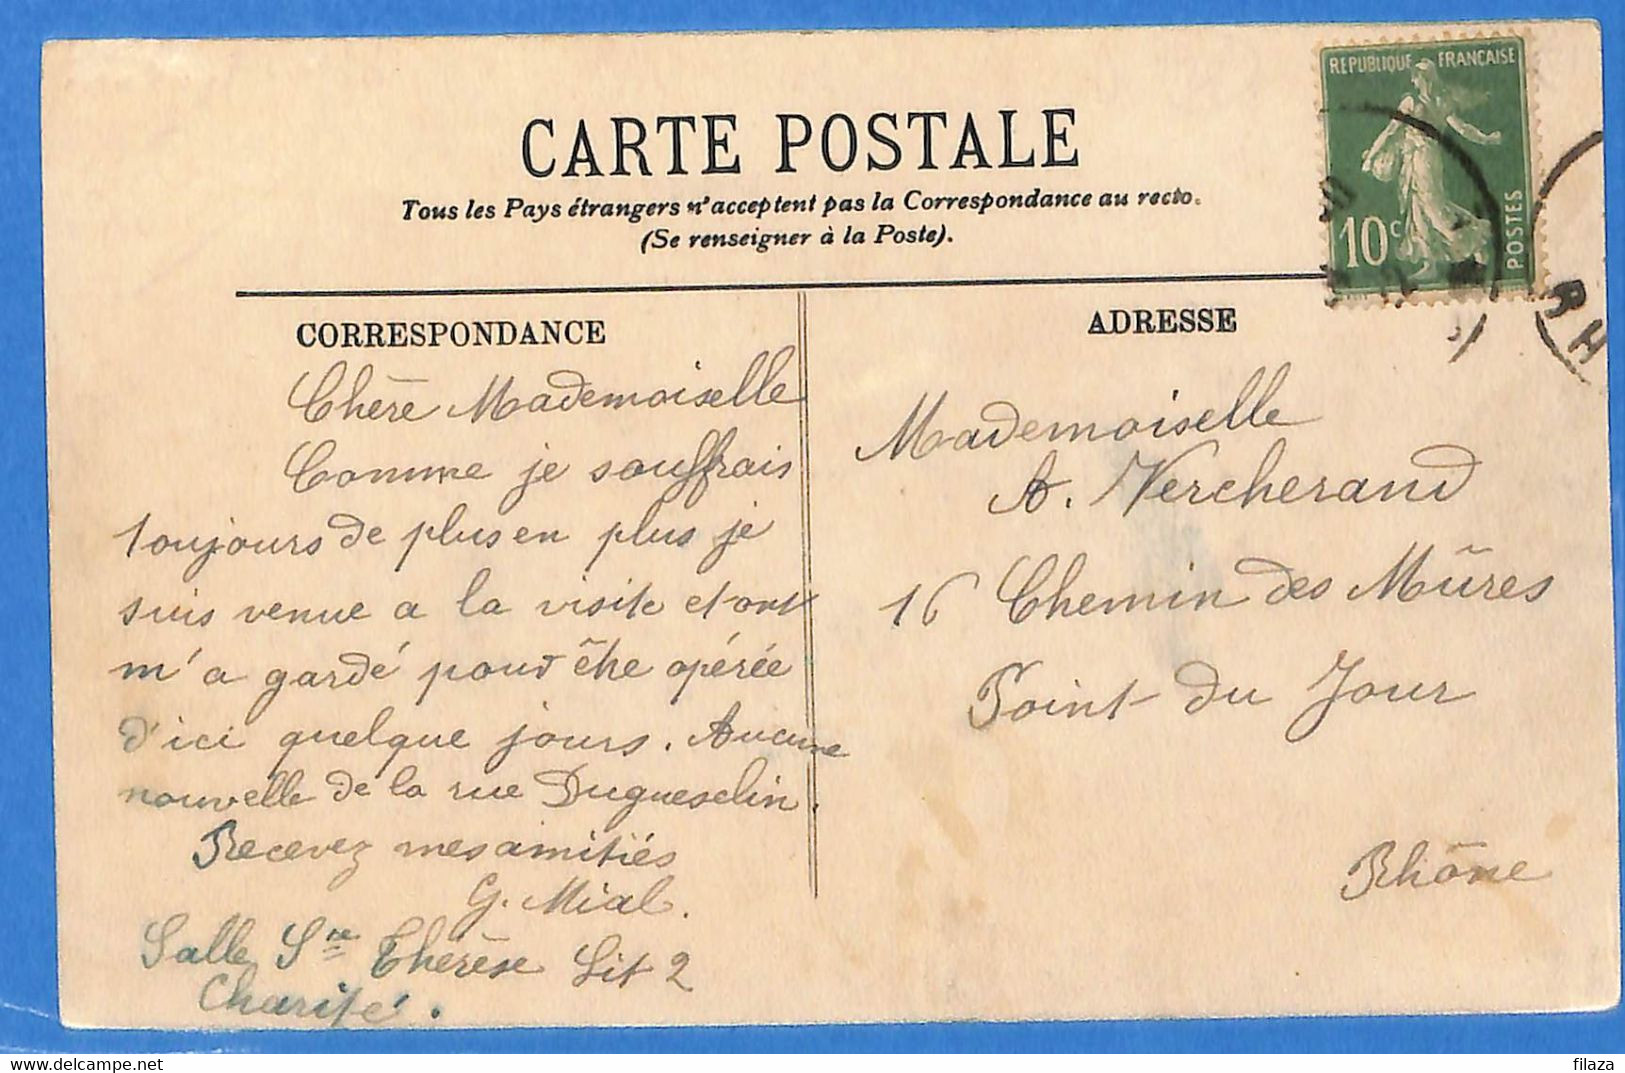 CARTE POSTALE
Tous les Pays étrangers n'acceptent pas la Correspondance au recto.
(Se renseigner à la Poste).
REPUBLIQUE FRANÇAISE
10c
POSTES
RH
CORRESPONDANCE
Chère Mademoiselle
Comme je souffrais
toujours de plus en plus je
suis venue a la visite et ont
m'a gardé pour être opérée
d'ici quelques jours. Aucune
nouvelle de la rue Dugueselin.
Recevez mes amitiés
G. Mial.
Salle Ste Thérèse Lit 2
Charité.
ADRESSE
Mademoiselle
A. Vercherand
16 Chemin des Mûres
Point du Jour
Rhône
filaza